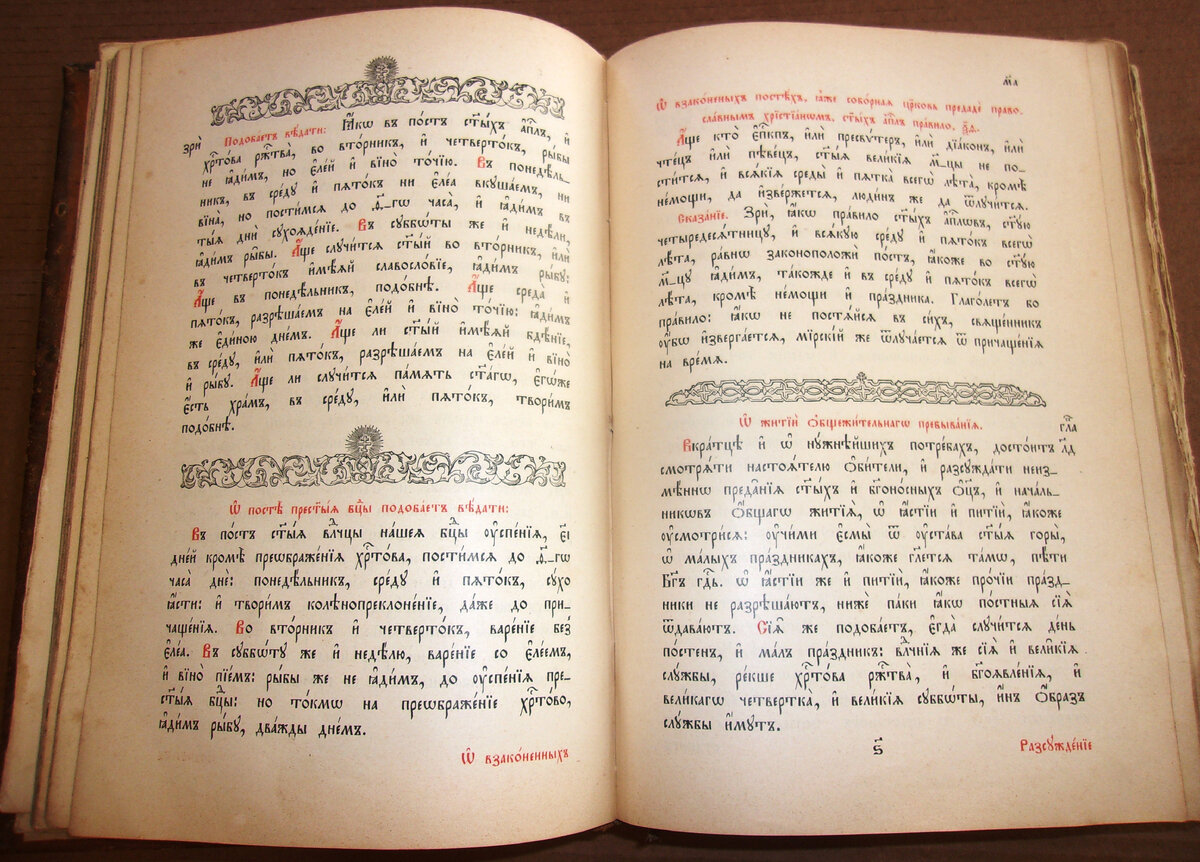 зрѝ
Подоба́етъ вѣ́дати: Ꙗ҆́кѡ въ по́стъ ст҃ы́хъ а҆пⷭ҇лъ, и҆
хрⷭ҇то́ва ржⷭ҇тва̀, во вто́рникъ, и҆ четверто́къ, ры́бы
не ꙗ҆ди́мъ, но є҆ле́й и҆ вїно̀ то́чїю. Въ понедѣ́ль-
никъ, въ сре́дꙋ и҆ пѧто́къ ни є҆ле́а вкꙋша́емъ, ни
вїна̀, но пости́мсѧ до ѳ҃-гѡ часа̀, и҆ ꙗ҆ди́мъ въ
ты́ѧ днѝ сꙋхоѧде́нїе. Въ сꙋббѡ́ты же и҆ недѣ́ли,
ꙗ҆ди́мъ ры́бы. А҆́ще слꙋчи́тсѧ ст҃ы́й во вто́рникъ, и҆лѝ
въ четверто́къ и҆мѣ́ѧй славосло́вїе, ꙗ҆ди́мъ ры́бꙋ:
А҆́ще въ понедѣ́льникъ, подо́бнѣ. А҆́ще среда̀ и҆
пѧто́къ, разрѣша́емъ на є҆ле́й и҆ вїно̀ то́чїю: ꙗ҆ди́мъ
же є҆ди́ною дне́мъ. А҆́ще ли ст҃ы́й и҆мѣ́ѧй бдѣ́нїе,
въ сре́дꙋ, и҆лѝ пѧто́къ, разрѣша́емъ на є҆ле́й и҆ вїно̀
и҆ ры́бꙋ. А҆́ще ли слꙋчи́тсѧ па́мѧть ст҃а́гѡ, є҆гѡ́же
є҆́сть хра́мъ, въ сре́дꙋ, и҆лѝ пѧто́къ, твори́мъ
подо́бнѣ.
Ѡ҆ постѣ̀ престы́ѧ бцⷣы подоба́етъ вѣ́дати:
Въ по́стъ ст҃ы́ѧ влⷣчцы на́шеѧ бцⷣы ᲂу҆спе́нїѧ, є҃і
дне́й кромѣ̀ преѡбраже́нїѧ хрⷭ҇то́ва, пости́мсѧ до ѳ҃-гѡ
часа̀ днѐ: понедѣ́льникъ, сре́дꙋ и҆ пѧто́къ, сꙋ́хо
ꙗ҆́сти: и҆ твори́мъ колѣнопреклоне́нїе, да́же до при-
чаще́нїѧ. Во вто́рникъ и҆ четверто́къ, варе́нїе без̾
є҆ле́а. Въ сꙋббѡ́тꙋ же и҆ недѣ́лю, варе́нїе со є҆ле́емъ,
и҆ вїно̀ пїе́мъ: ры́бы же не ꙗ҆ди́мъ, до ᲂу҆спе́нїѧ пре-
ст҃ы́ѧ бцⷣы: но то́кмѡ на преѡбраже́нїе хрⷭ҇то́во,
ꙗ҆ди́мъ ры́бꙋ, два́жды дне́мъ.
Ѡ҆ взако́ненныхъ
м҃а
Ѡ҆ взако́неныхъ посте́хъ, ꙗ҆̀же собо́рнаѧ цр҃ковь предадѐ право-
сла́внымъ хрїстїа́нѡмъ, ст҃ы́хъ а҆пⷭ҇лъ пра́вило, ѯ҃ѳ.
А҆́ще кто̀ є҆пкⷭ҇пъ, и҆лѝ пресвѵ́теръ, и҆лѝ дїа́конъ, и҆лѝ
чте́цъ и҆лѝ пѣве́цъ, ст҃ы́ѧ вели́кїѧ м҃-цы не по-
сти́тсѧ, и҆ всѧ́кїѧ среды̀ и҆ пѧтка̀ всегѡ̀ лѣ́та, кромѣ̀
не́мощи, да и҆зве́ржетсѧ, лю́динъ же да ѿлꙋчи́тсѧ.
Сказа́нїе. Зрѝ, ꙗ҆́кѡ пра́вило ст҃ы́хъ а҆пⷭ҇лѡвъ, ст҃ꙋ́ю
четыредесѧ́тницꙋ, и҆ всѧ́кꙋю сре́дꙋ и҆ пѧто́къ всегѡ̀
лѣ́та, ра́внѡ законоположѝ по́стъ, ꙗ҆́коже во ст҃ꙋ́ю
м҃-цꙋ ꙗ҆ди́мъ, та́кожде и҆ въ сре́дꙋ и҆ пѧто́къ всегѡ̀
лѣ́та, кромѣ̀ не́мощи и҆ пра́здника. Глаго́летъ бо
пра́вило: ꙗ҆́кѡ не постѧ́йсѧ въ си́хъ, свѧще́нникъ
ᲂу҆́бѡ и҆зверга́етсѧ, мїрскі́й же ѿлꙋча́етсѧ ѿ причаще́нїѧ
на вре́мѧ.
Ѡ҆ житїѝ ѻ҆бщежи́тельнагѡ пребыва́нїѧ.
гла
л҃д
Вкра́тцѣ и҆ ѡ҆ нꙋжнѣ́йшихъ потре́бахъ, досто́итъ
смотрѧ́ти настоѧ́телю ѻ҆би́тели, и҆ разсꙋжда́ти неиз-
мѣ́ннѡ преда̑нїѧ ст҃ы́хъ и҆ бг҃оно́сныхъ ѻ҆ц҃ъ, и҆ нача́ль-
никѡвъ ѻ҆́бщагѡ житїѧ̀, ѡ҆ ꙗ҆стїѝ и҆ питїѝ, ꙗ҆́коже
ᲂу҆смотри́сѧ: ᲂу҆чи́ми є҆смы̀ ѿ ᲂу҆ста́ва ст҃ы́ѧ горы̀,
ѡ҆ ма́лыхъ пра́здникахъ, ꙗ҆́коже гл҃етсѧ та́мѡ, пѣ́ти
Бг҃ъ гдⷭ҇ь. ѡ҆ ꙗ҆стїѝ же и҆ питїѝ, ꙗ҆́коже про́чїи пра́зд-
ники не разрѣша́ютъ, нижѐ па́ки ꙗ҆́кѡ по́стныѧ сїѧ̀
ѿдава́ютъ. Сїѧ̑ же подоба́етъ, є҆гда̀ слꙋчи́тсѧ де́нь
по́стенъ, и҆ ма́лъ пра́здникъ: влⷣчнїѧ же сїѧ̑ и҆ вели̑кїѧ
слꙋ́жбы, ре́кше хрⷭ҇то́ва ржⷭ҇тва̀, и҆ бг҃оѧвле́нїѧ, и҆
вели́кагѡ четвертка̀, и҆ вели́кїѧ сꙋббѡ́ты, и҆́нъ ѻ҆́бразъ
слꙋ́жбы и҆́мꙋтъ.
ѕ҃
Разсꙋжде́нїе